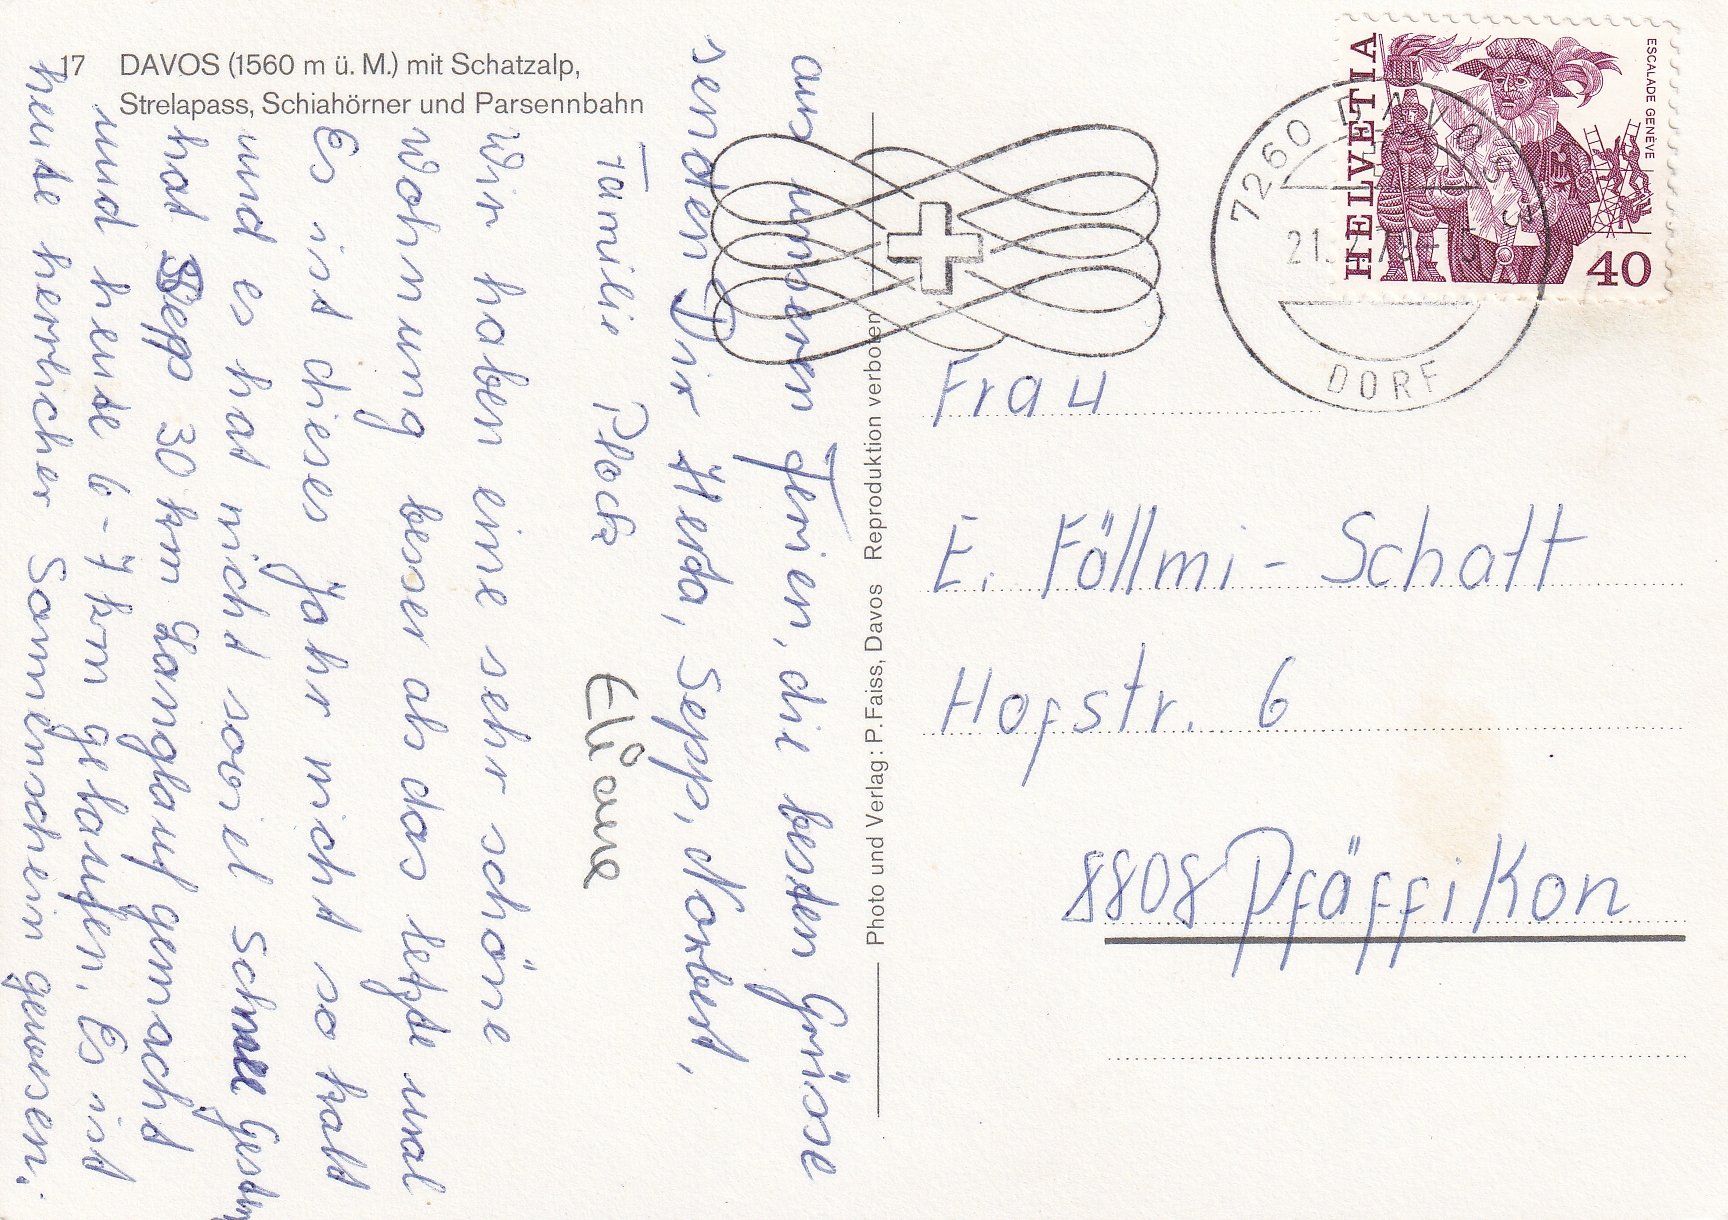 17 DAVOS (1560 m ü. M.) mit Schatzalp,
Strelapass, Schiahörner und Parsennbahn
aus unseren Ferien, die besten Grüsse
senden Dir Heda, Sepp, Norbert,
Familie Plock Eliane
Wir haben eine sehr schöne
Wohnung besser als das letzte mal
Es ist dieses Jahr nicht so kalt
und es hat nicht soviel Schnee Gestern
hat Sepp 30 km Langlauf gemacht
und heute 6-7 km gelaufen. Es ist
heute herrlicher Sonnenschein gewesen.
Photo und Verlag: P. Faiss, Davos Reproduktion verboten
HELVETIA
ESCALADE GENÈVE
40
7260 DAVOS
DORF
Frau
E. Föllmi-Schatt
Hofstr. 6
8808 Pfäffikon